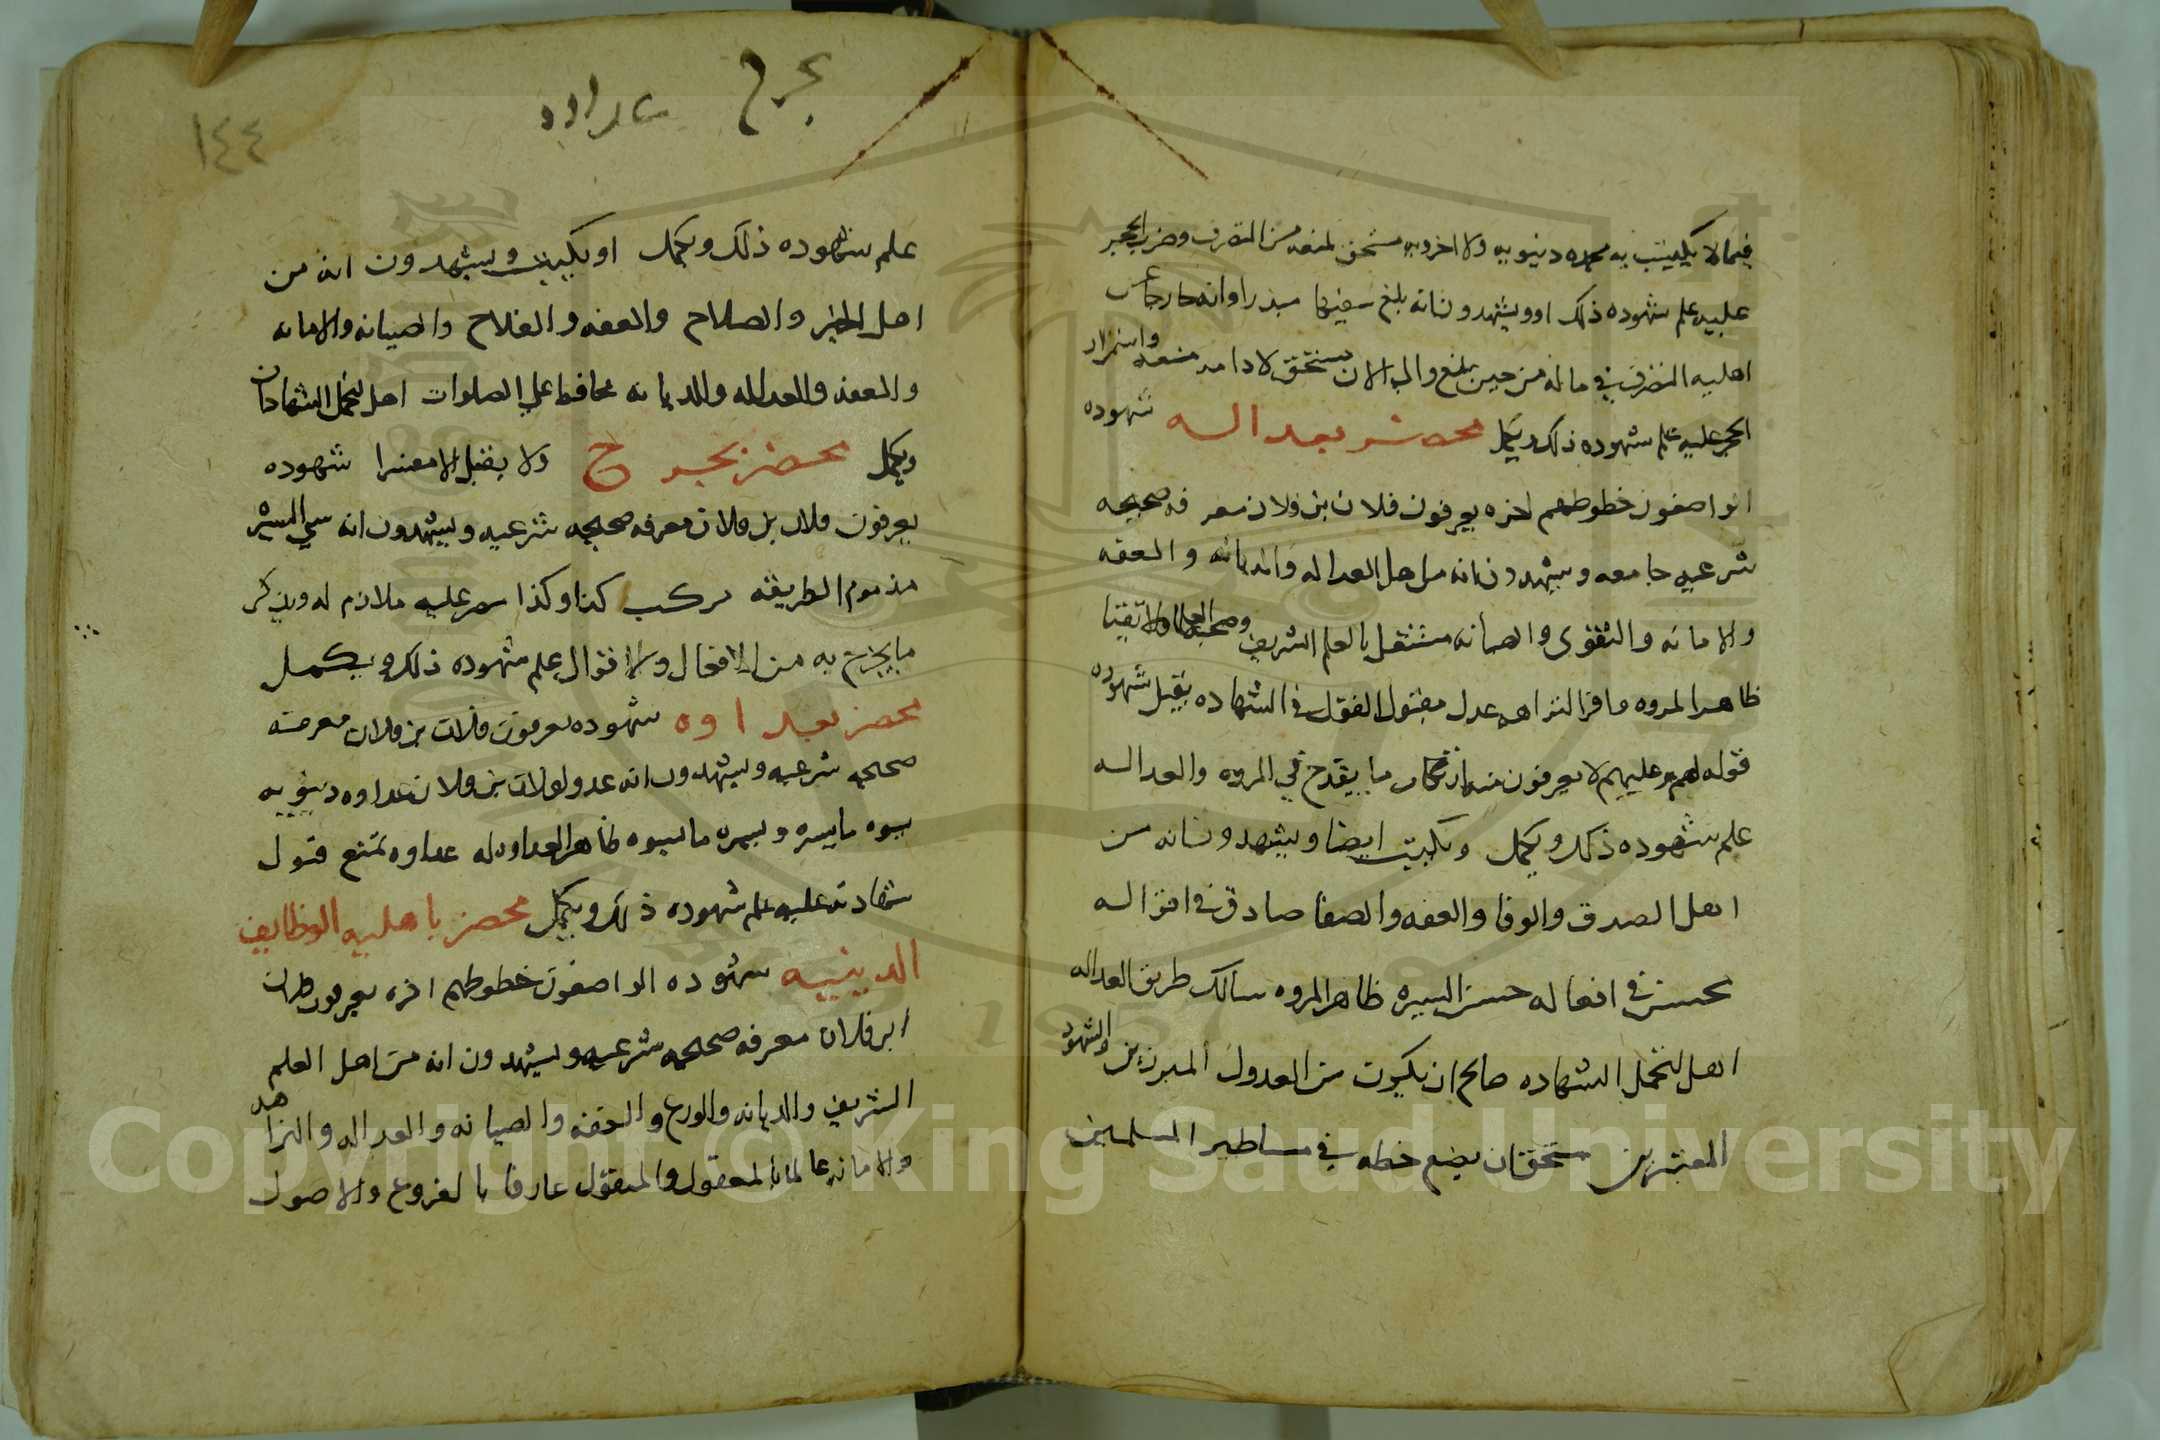 فيما لا يكتسب به محمده دنيويه ولا اخرويه مستحق لمنعه من التصرف وضرب الحجر
عليه علم شهوده ذلك او ويشهدون انه بلغ سفيها مبذرا وانه خارجا عن
اهليه التصرف في ماله من حين بلغ والى الان مستحق لادامه منعه واستمرار
الحجر عليه علم شهوده ذلك ويكمل محضر بعداله شهوده
الواضعون خطوطهم اخره يعرفون فلان بن فلان معرفه صحيحه
شرعيه جامعه ويشهدون انه من اهل العداله والديانه والعفه
والامانه والتقوى والصيانه مشتغل بالعلم الشريف وصحبه العلما والاتقيا
ظاهر المروه وافر النزاهه عدل مقبول القول في الشهاده يقبل شهوده
قوله لهم وعليهم لا يعرفون منه ارتكاب ما يقدح في المروه والعداله
علم شهوده ذلك ويكمل ويكتب ايضا ويشهدون انه من
اهل الصدق والوفا والعفه والصفا صادق في اقواله
محسن في افعاله حسن السيره ظاهر المروه سالك طريق العداله
اهل لتحمل الشهاده صالح ان يكون من العدول المبرزين والشهود
المعتبرين مستحق ان يضع خطه في مساطير المسلمين
بجرح عداوه
١٤٤
علم شهوده ذلك ويكمل او يكتب ويشهدون انه من
اهل الخير والصلاح والعفه والفلاح والصيانه والامانه
والمعفه والعداله والديانه محافظ على الصلوات اهل لتحمل الشهادات
ويكمل محضر بجرح ولا يقبل الا مفسرا شهوده
يعرفون فلان بن فلان معرفه صحيحه شرعيه ويشهدون انه سي السير
مذموم الطريقه مركب كذا وكذا مصر عليه ملازم له ويذكر
ما يجرح به من الافعال والاقوال علم شهوده ذلك ويكمل
محضر بعداوه شهوده يعرفون فلان بن فلان معرفه
صحيحه شرعيه ويشهدون انه عدو لفلان بن فلان عداوه دنيويه
يسوه ما يسره ويسره ما يسوه ظاهر العداوه له عداوه تمنع قبول
شهادته عليه علم شهوده ذلك ويكمل محضر باهليه الوظايف
الدينيه شهوده الواضعون خطوطهم اخره يعرفون فلان
ابن فلان معرفه صحيحه شرعيه ويشهدون انه من اهل العلم
الشريف والديانه والورع والعفه والصيانه والعداله والنزاهه
والامانه عالما بالمعقول والمنقول عارفا بالفروع والاصول
Copyright © King Saud University
1957